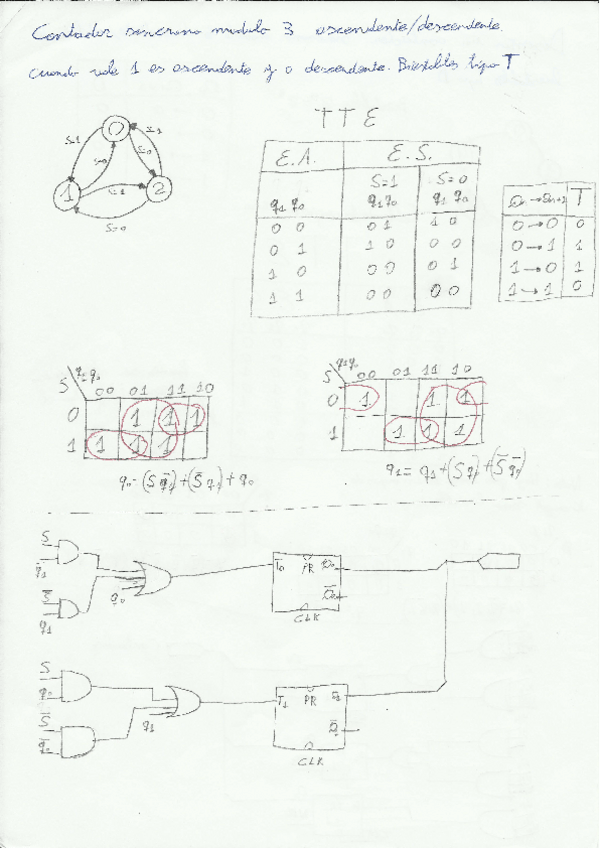 Contador sincrono modulo 3 ascendente/descendente.
Cuando vale 1 es ascendente y 0 descendente. Biestables tipo T
T T E
0
1
2
S=1
S=0
S=1
S=0
S=1
S=0
E.A. E.S.
S=1 S=0
q1 q0 q1 q0 q1 q0
0 0 0 1 1 0
0 1 1 0 0 0
1 0 0 0 0 1
1 1 0 0 0 0
T
0→0 0
0→1 1
1→0 1
1→1 0
S q1q0 00 01 11 10
0 1 1 1
1 1 1 1
q0=(S q̄1)+(S̄ q1)+q0
S q1q0 00 01 11 10
0 1 1 1
1 1 1 1
q1=q1+(S q0)+(S̄ q̄0)
S
q̄1
S̄
q1
q0
T0 PR Q0
Q̄0
CLK
S
q0
S̄
q̄0
q1
T1 PR Q1
Q̄
CLK